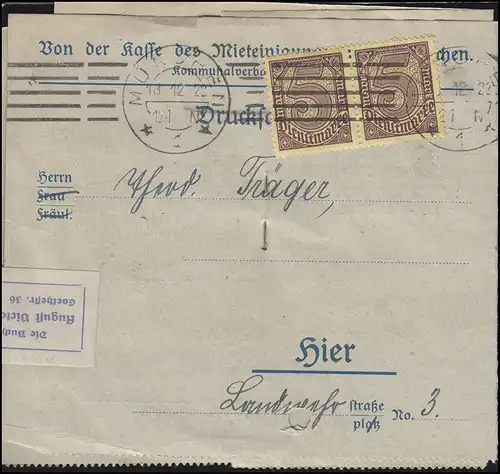 Von der Kasse des Mieteinigun chen.
Kommunalverba
MÜN
18 12 22
12-1 N
1
5 5
Mark Mark
Dienstmarke Dienstmarke
Drucksc
Herrn
Frau
Fräul.
Theod. Träger,
Die Buch
August Victo
Goethestr. 36
Hier
Landwehr straße
platz No. 3.